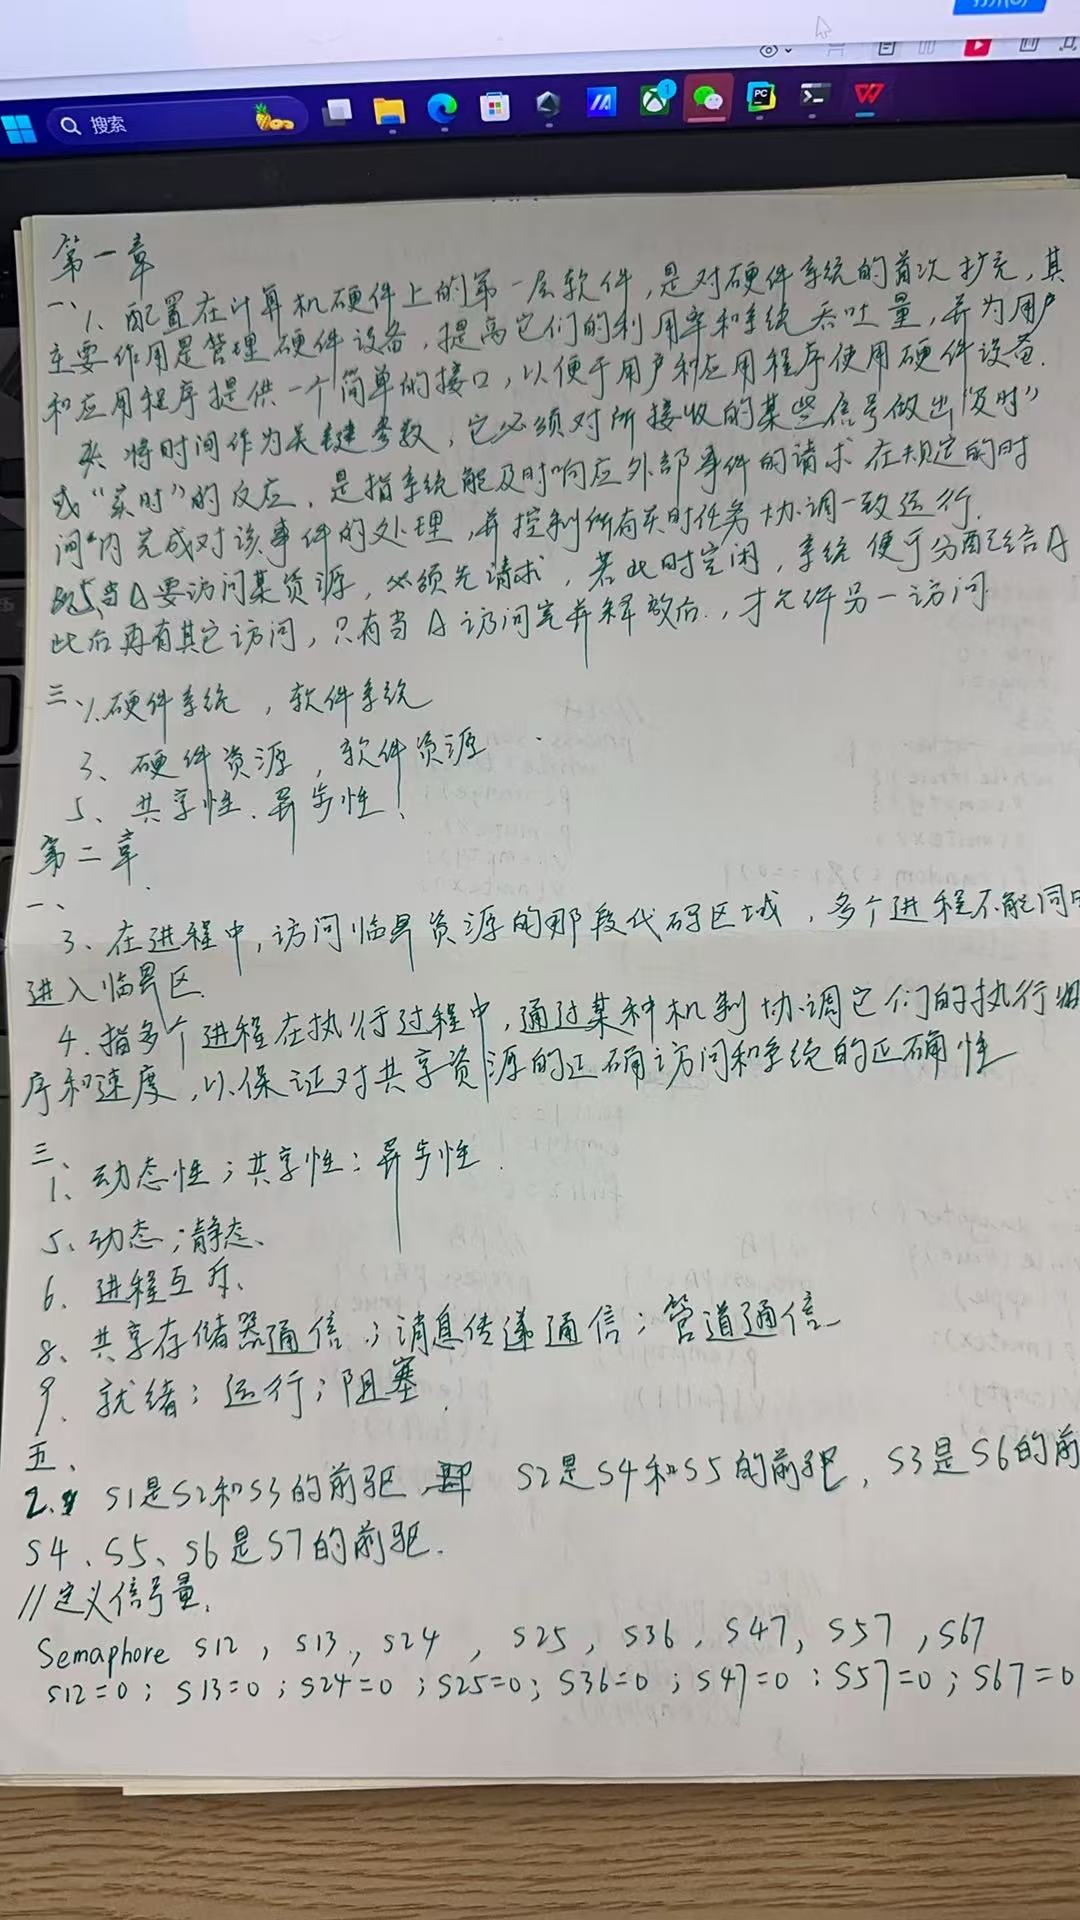 打开(O)
搜索
1
PC
第一章
一、1、配置在计算机硬件上的第一层软件,是对硬件系统的首次扩充,其
主要作用是管理硬件设备,提高它们的利用率和系统吞吐量,并为用户
和应用程序提供一个简单的接口,以便于用户和应用程序使用硬件设备.
将时间作为关键参数,它必须对所接收的某些信号做出“及时”
或“实时”的反应,是指系统能及时响应外部事件的请求在规定的时
间内完成对该事件的处理,并控制所有实时任务协调一致运行.
5、当A要访问某资源,必须先请求,若此时空闲,系统便可分配给A
此后再有其它访问,只有当A访问完并释放后.,才允许另一访问
三、1.硬件系统,软件系统
3、硬件资源,软件资源
5、共享性.异步性!
第二章.
一、
3、在进程中,访问临界资源的那段代码区域,多个进程不能同
进入临界区.
4.指多个进程在执行过程中,通过某种机制协调它们的执行
序和速度,以保证对共享资源的正确访问和系统的正确性
三、
1、动态性;共享性:异步性.
5、动态;静态、
6、进程互斥、
8、共享存储器通信;消息传递通信;管道通信
9、就绪;运行;阻塞.
五、
2. S1是S2和S3的前驱, S2是S4和S5的前驱,S3是S6的前
S4、S5、S6是S7的前驱.
//定义信号量,
Semaphore S12,S13,S24,S25,S36,S47,S57,S67
S12=0;S13=0;S24=0;S25=0;S36=0;S47=0:S57=0;S67=0